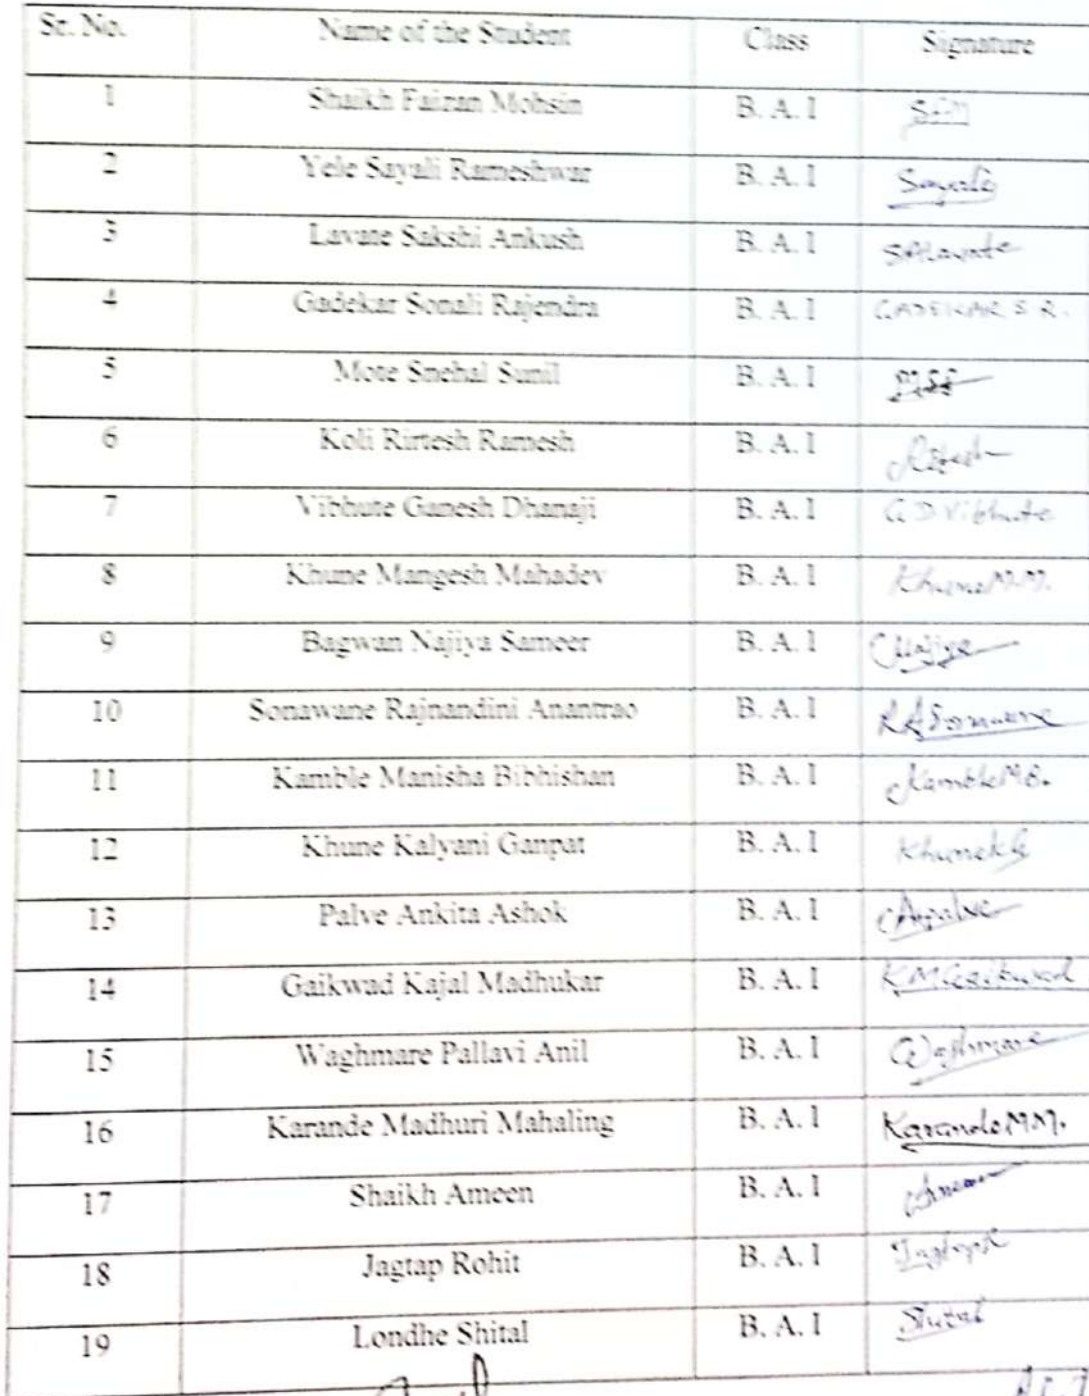 Sr. No. Name of the Student Class Signature
1 Shaikh Faizan Mohsin B. A. I SFM
2 Yele Sayali Rameshwar B. A. I Sayali
3 Lavate Sakshi Ankush B. A. I SALavate
4 Gadekar Sonali Rajendra B. A. I GADEKAR S. R.
5 Mote Snehal Sunil B. A. I MSS
6 Koli Rirtesh Ramesh B. A. I Ritesh
7 Vibhute Ganesh Dhanaji B. A. I G D Vibhute
8 Khune Mangesh Mahadev B. A. I Khune M.M.
9 Bagwan Najiya Sameer B. A. I Najiya
10 Sonawane Rajnandini Anantrao B. A. I R A Sonawane
11 Kamble Manisha Bibhishan B. A. I Kamble M B.
12 Khune Kalyani Ganpat B. A. I Khune KG
13 Palve Ankita Ashok B. A. I Apalve
14 Gaikwad Kajal Madhukar B. A. I K M Gaikwad
15 Waghmare Pallavi Anil B. A. I Waghmare
16 Karande Madhuri Mahaling B. A. I Karande M M.
17 Shaikh Ameen B. A. I Ameen
18 Jagtap Rohit B. A. I Jagtap
19 Londhe Shital B. A. I Shital